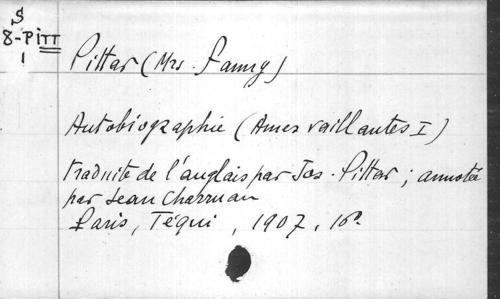 S
8-PITT
1
Pittar (Mrs. Fanny)
Autobiographie (Ames vaillantes I)
traduite de l'anglais par Jos. Pittar ; annotée
par Jean Charruau
Paris, Téqui, 1907, 16º.